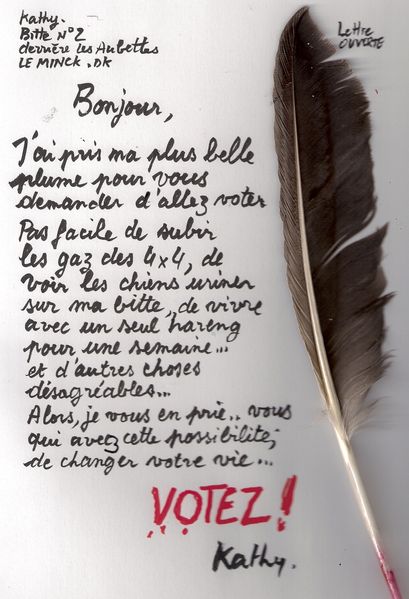 Kathy.
Bitte N°2
derrière les Aubettes
LE MINCK . DK
Lettre
OUVERTE
Bonjour,
J'ai pris ma plus belle
plume pour vous
demander d'allez voter
Pas facile de subir
les gaz des 4x4, de
voir les chiens uriner
sur ma bitte, de vivre
avec un seul hareng
pour une semaine...
et d'autres choses
désagréables...
Alors, je vous en prie.. vous
qui avez cette possibilité,
de changer votre vie...
VOTEZ !
Kathy.